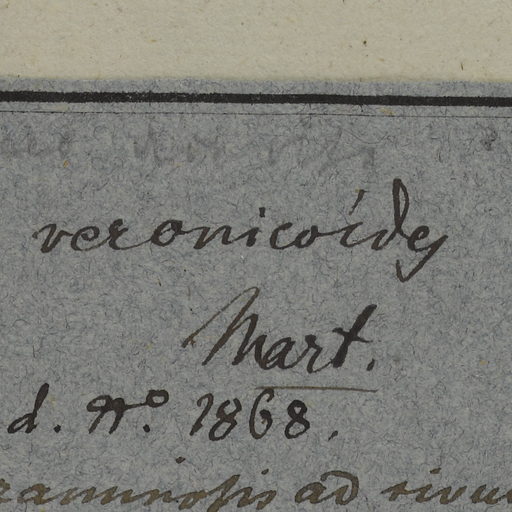 veronicoides
Mart.
d. No. 1868.
raminosis ad rivu